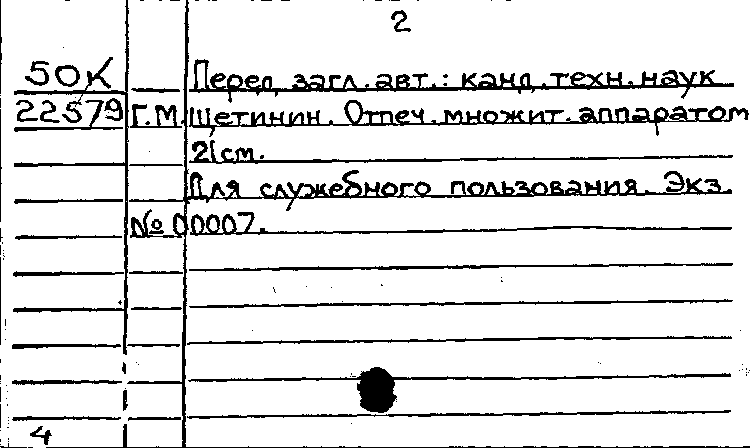 2
50К Перед загл. авт.: канд. техн. наук
22579 Г.М. Щетинин. Отпеч. множит. аппаратом
21см.
Для служебного пользования. Экз.
№ 00007.
4